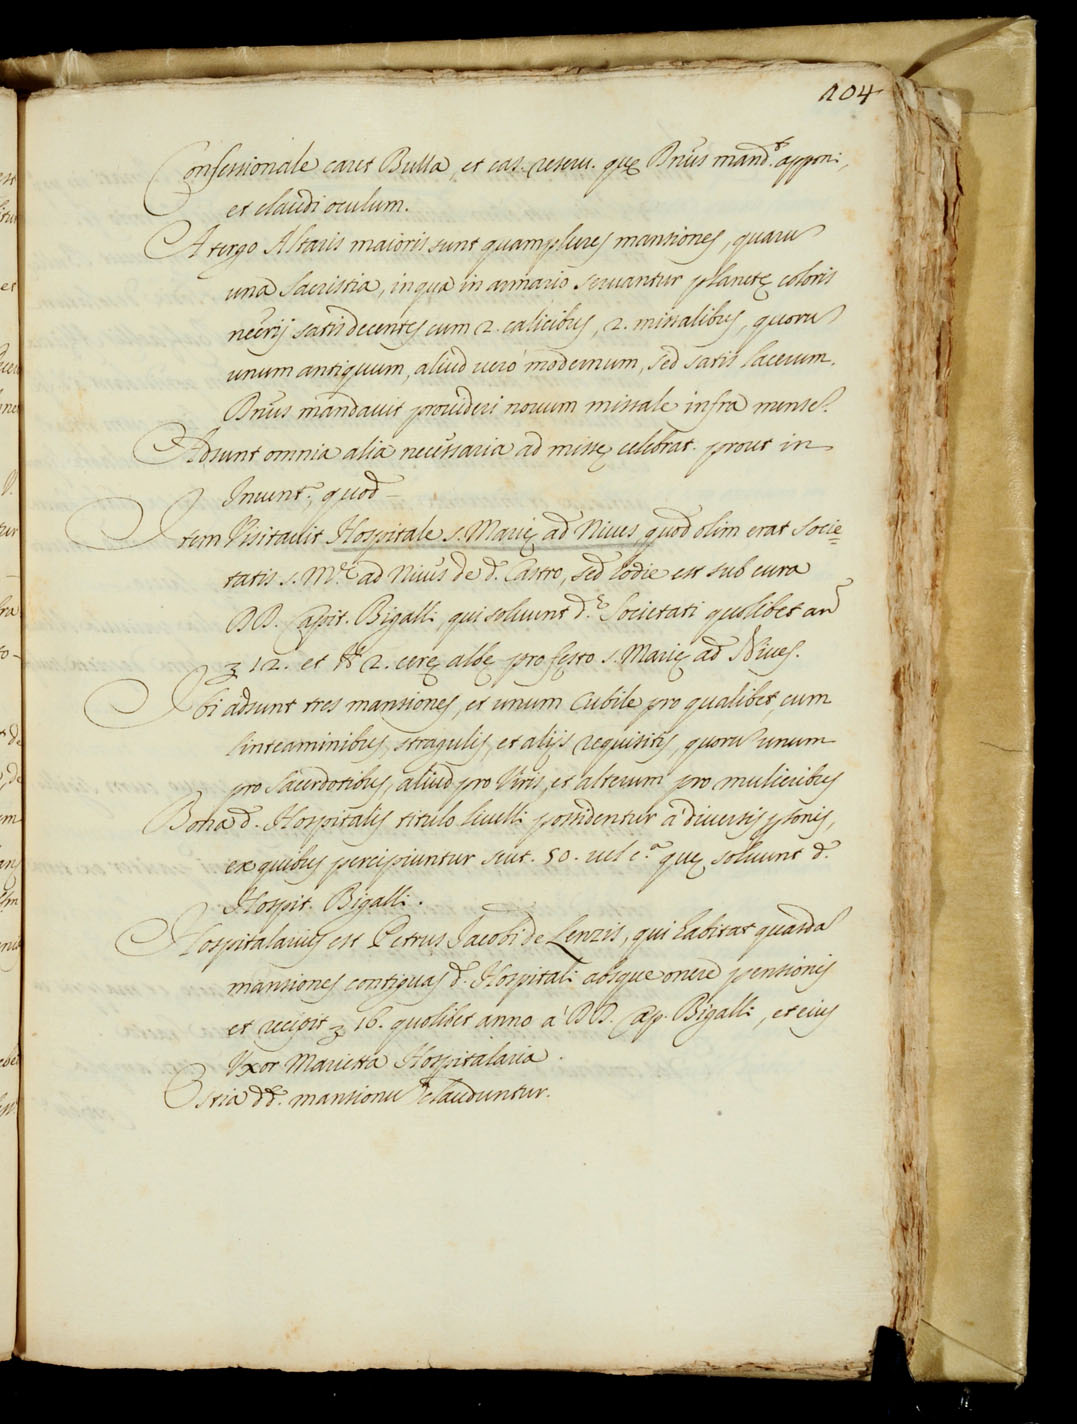 104
Confessionale caret Bulla, et cas. reseru. quę Dnus mand.t appon:,
et claudi oculum.
A tergo Altaris maioris sunt quamplures mansiones, quaru
una Sacristia, in qua in armario seruantur planetę coloris
necrij satis decentes cum 2. calicibus, 2. missalibus, quoru
unum antiquum, aliud uero modernum, sed satis lacerum.
Dnus mandauit prouideri nouum missale infra mense.
Adsunt omnia alia necessaria ad missę celebrat. prout in
Inuent., quod
Item Visitauit Hospitale s. Marię ad Niues quod olim erat Socie=
tatis s. M.e ad Niues de d. Castro, sed hodie est sub cura
DD. Capit. Bigalli, qui soluunt d.ę Societati quolibet an
12. et ℔ 2. cerę albę pro festo s. Marię ad Niues.
Ibi adsunt tres mansiones, et unum Cubile pro qualibet, cum
linteaminibus, stragulis, et alijs requisitis, quoru unum
pro Sacerdotibus, aliud pro Viris, et alterum pro mulieribus
Bona d. Hospitalis titulo liuelli possidentur a diuersis psonis,
ex quibus percipiuntur scut. 50. uel c.a quę soluunt d.
Hospit. Bigalli.
Hospitalarius est Petrus Jacobi de Lenzis, qui habitat quasda
mansiones contiguas d. Hospitali absque onere pensionis
et recipit 16. quolibet anno à DD. Cap. Bigalli, et eius
Uxor Marietta Hospitalaria.
Ostia dd. mansionu clauduntur.